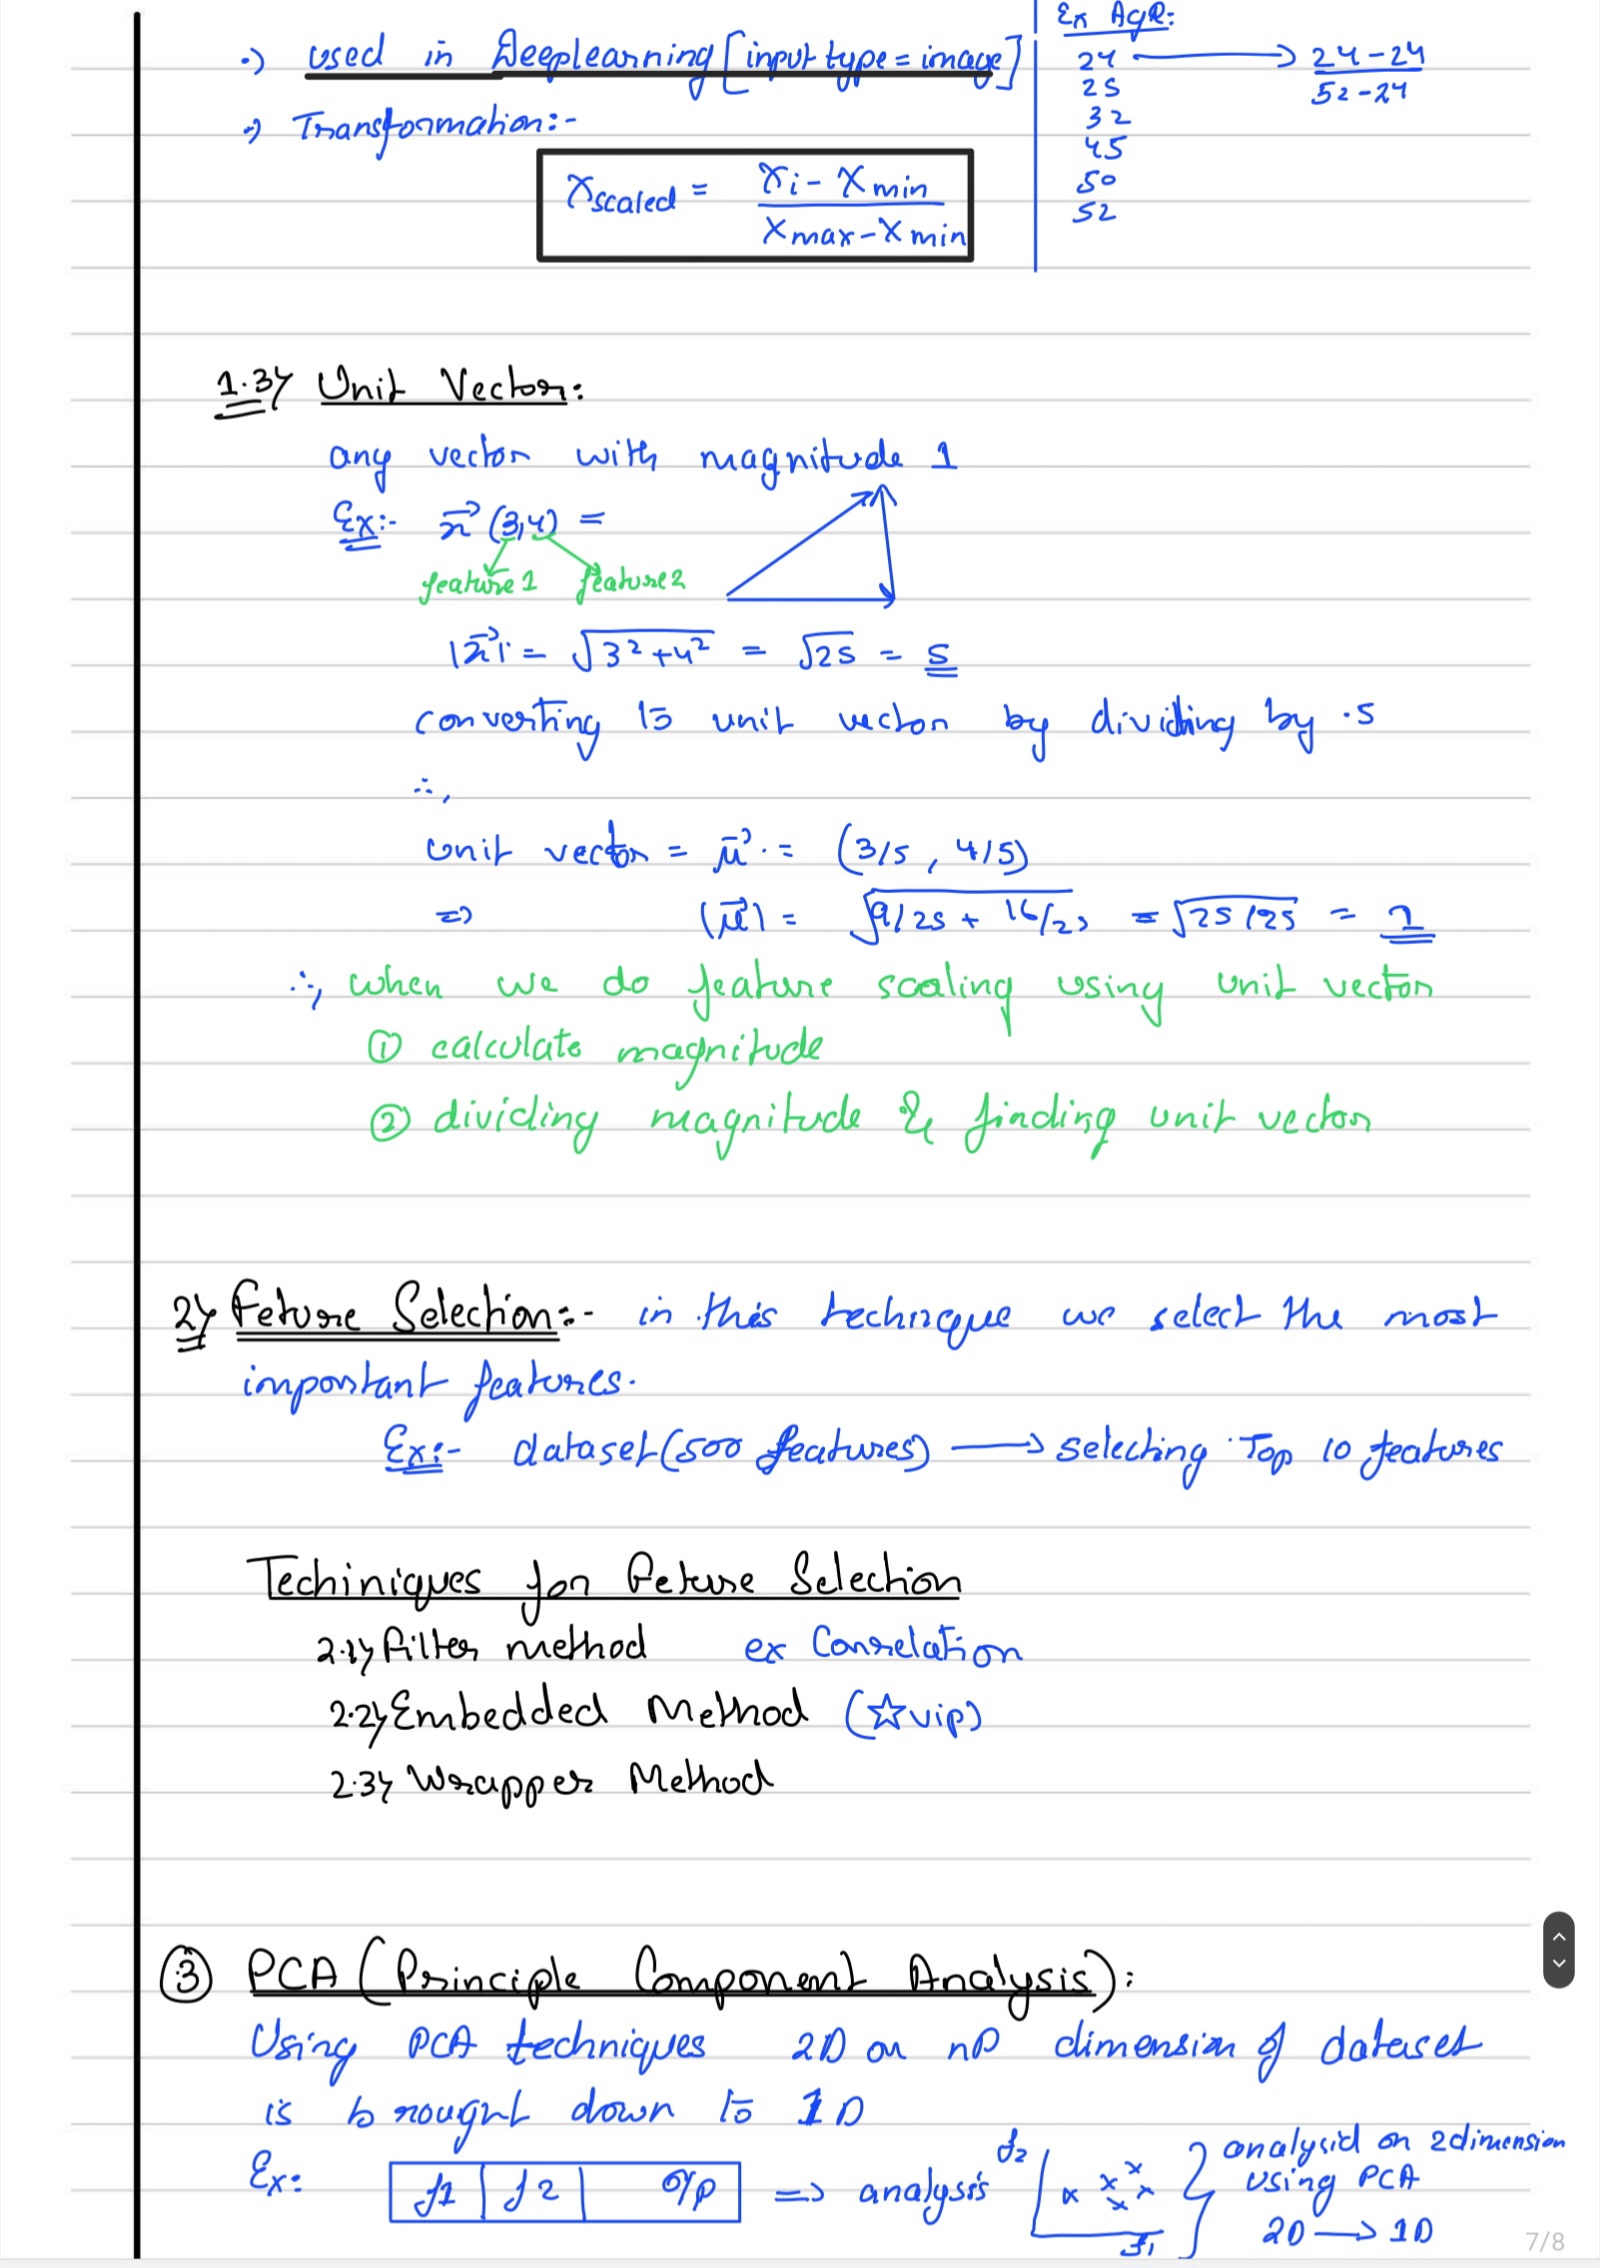 ⇒ used in Deeplearning [input type = image]
⇒ Transformation:-
Xscaled = Xi - Xmin / Xmax - Xmin
Ex Age:
24 → 24-24 / 52-24
25
32
45
50
52
1.3) Unit Vector:
any vector with magnitude 1
Ex:- (3,4) =
feature1 feature2
= √3²+4² = √25 = 5
converting to unit vector by dividing by 5
∴,
unit vector = = (3/5, 4/5)
⇒ = √9/25 + 16/25 = √25/25 = 1
∴, when we do feature scaling using unit vector
① calculate magnitude
② dividing magnitude & finding unit vector
2) Feture Selection:- in this technique we select the most
important features.
Ex:- dataset(500 features) → selecting Top 10 features
Techiniques for Feture Selection
2.1) Filter method ex Correlation
2.2) Embedded Method (☆vip)
2.3) Wrapper Method
③ PCA (Principle Component Analysis):
Using PCA techniques 2D or nD dimension of dataset
is brought down to 1D
Ex: f1 | f2 | O/p ⇒ analysis f2 f1 } analysid on 2dimension
using PCA
2D → 1D
7/8